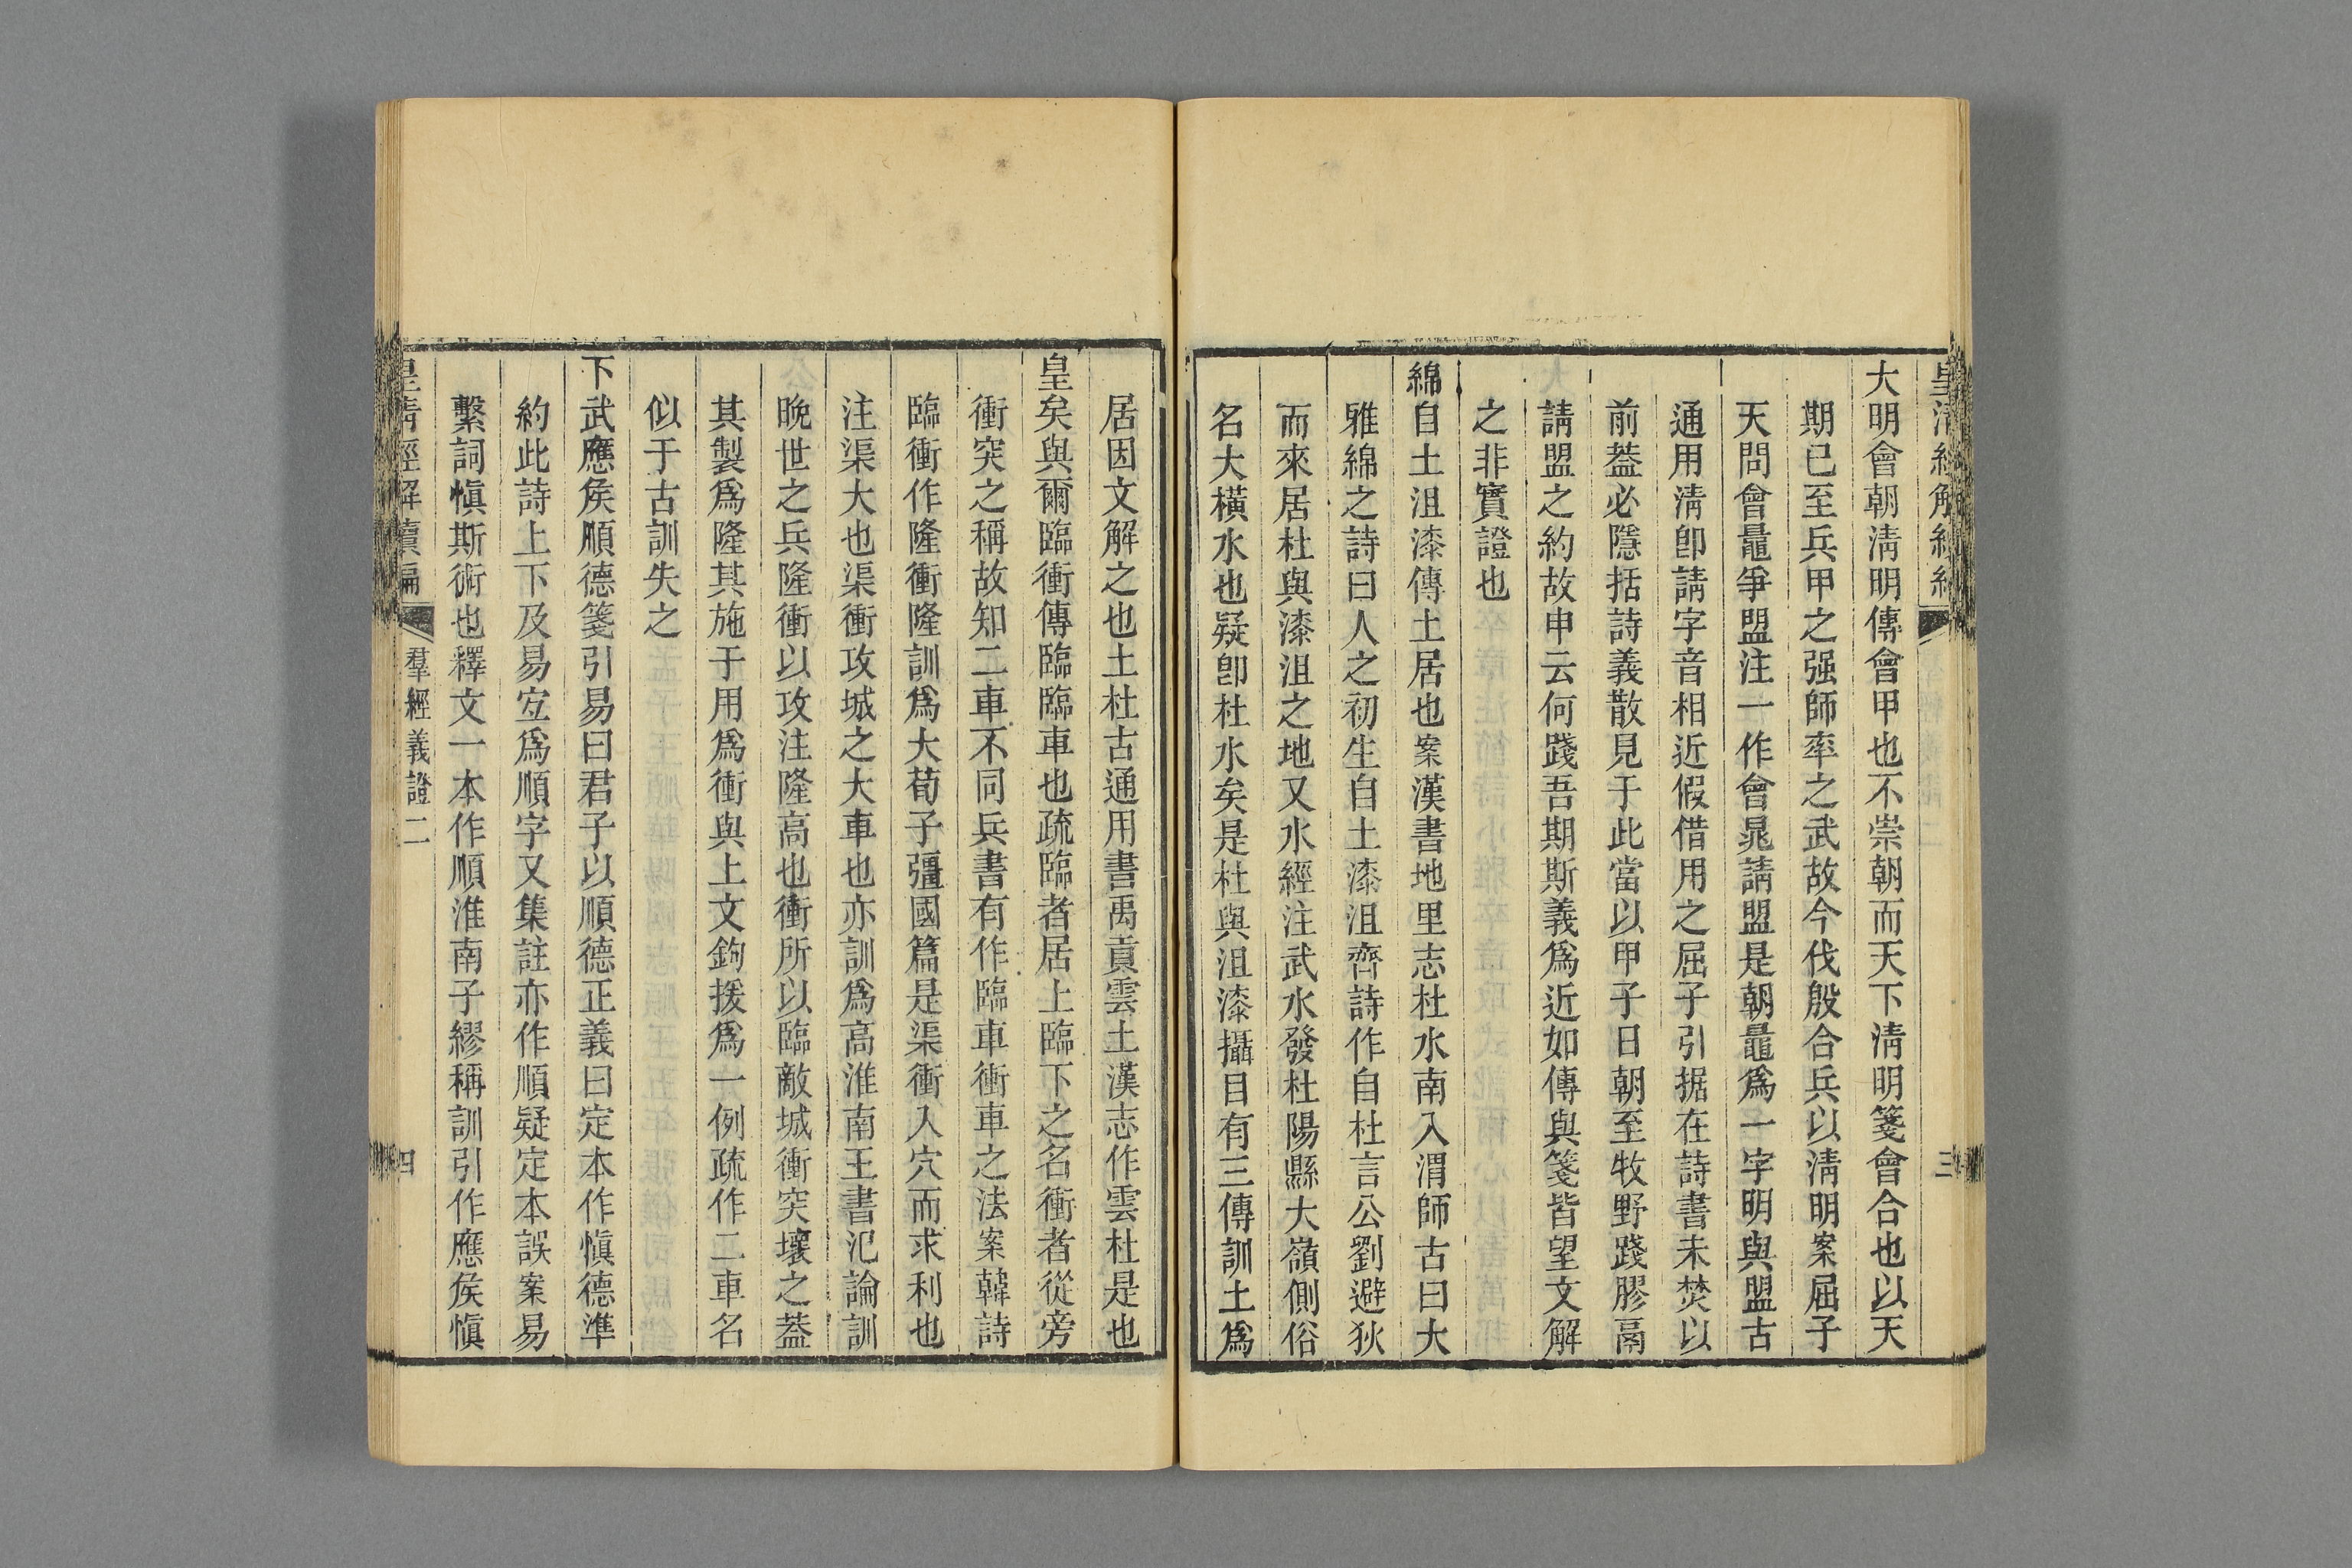 大明會朝淸明傳會甲也不崇朝而天下淸明箋會合也以天
期已至兵甲之强師率之武故今伐殷合兵以淸明案屈子
天問會鼂爭盟注一作會鼂請盟是朝鼂爲一字明與盟古
通用淸卽請字音相近假借用之屈子引据在詩書未焚以
前葢必隱括詩義散見于此當以甲子日朝至牧野踐膠鬲
請盟之約故申云何踐吾期斯義爲近如傳與箋皆望文解
之非實證也
綿自土沮漆傳土居也案漢書地里志杜水南入渭師古曰大
雅綿之詩曰人之初生自土漆沮齊詩作自杜言公劉避狄
而來居杜與漆沮之地又水經注武水發杜陽縣大嶺側俗
名大橫水也疑卽杜水矣是杜與沮漆攝目有三傳訓土爲
居因文解之也土杜古通用書禹貢雲土漢志作雲杜是也
皇矣與爾臨衝傳臨臨車也疏臨者居上臨下之名衝者從旁
衝突之稱故知二車不同兵書有作臨車衝車之法案韓詩
臨衝作隆衝隆訓爲大荀子彊國篇是渠衝入穴而求利也
注渠大也渠衝攻城之大車也亦訓爲高淮南王書氾論訓
晚世之兵隆衝以攻注隆高也衝所以臨敵城衝突壞之葢
其製爲隆其施于用爲衝與上文鉤援爲一例疏作二車名
似于古訓失之
下武應矦順德箋引易曰君子以順德正義曰定本作愼德準
約此詩上下及易宐爲順字又集註亦作順疑定本誤案易
繫詞愼斯術也釋文一本作順淮南子繆稱訓引作應矦愼
皇淸經解續編
羣經義證二
四